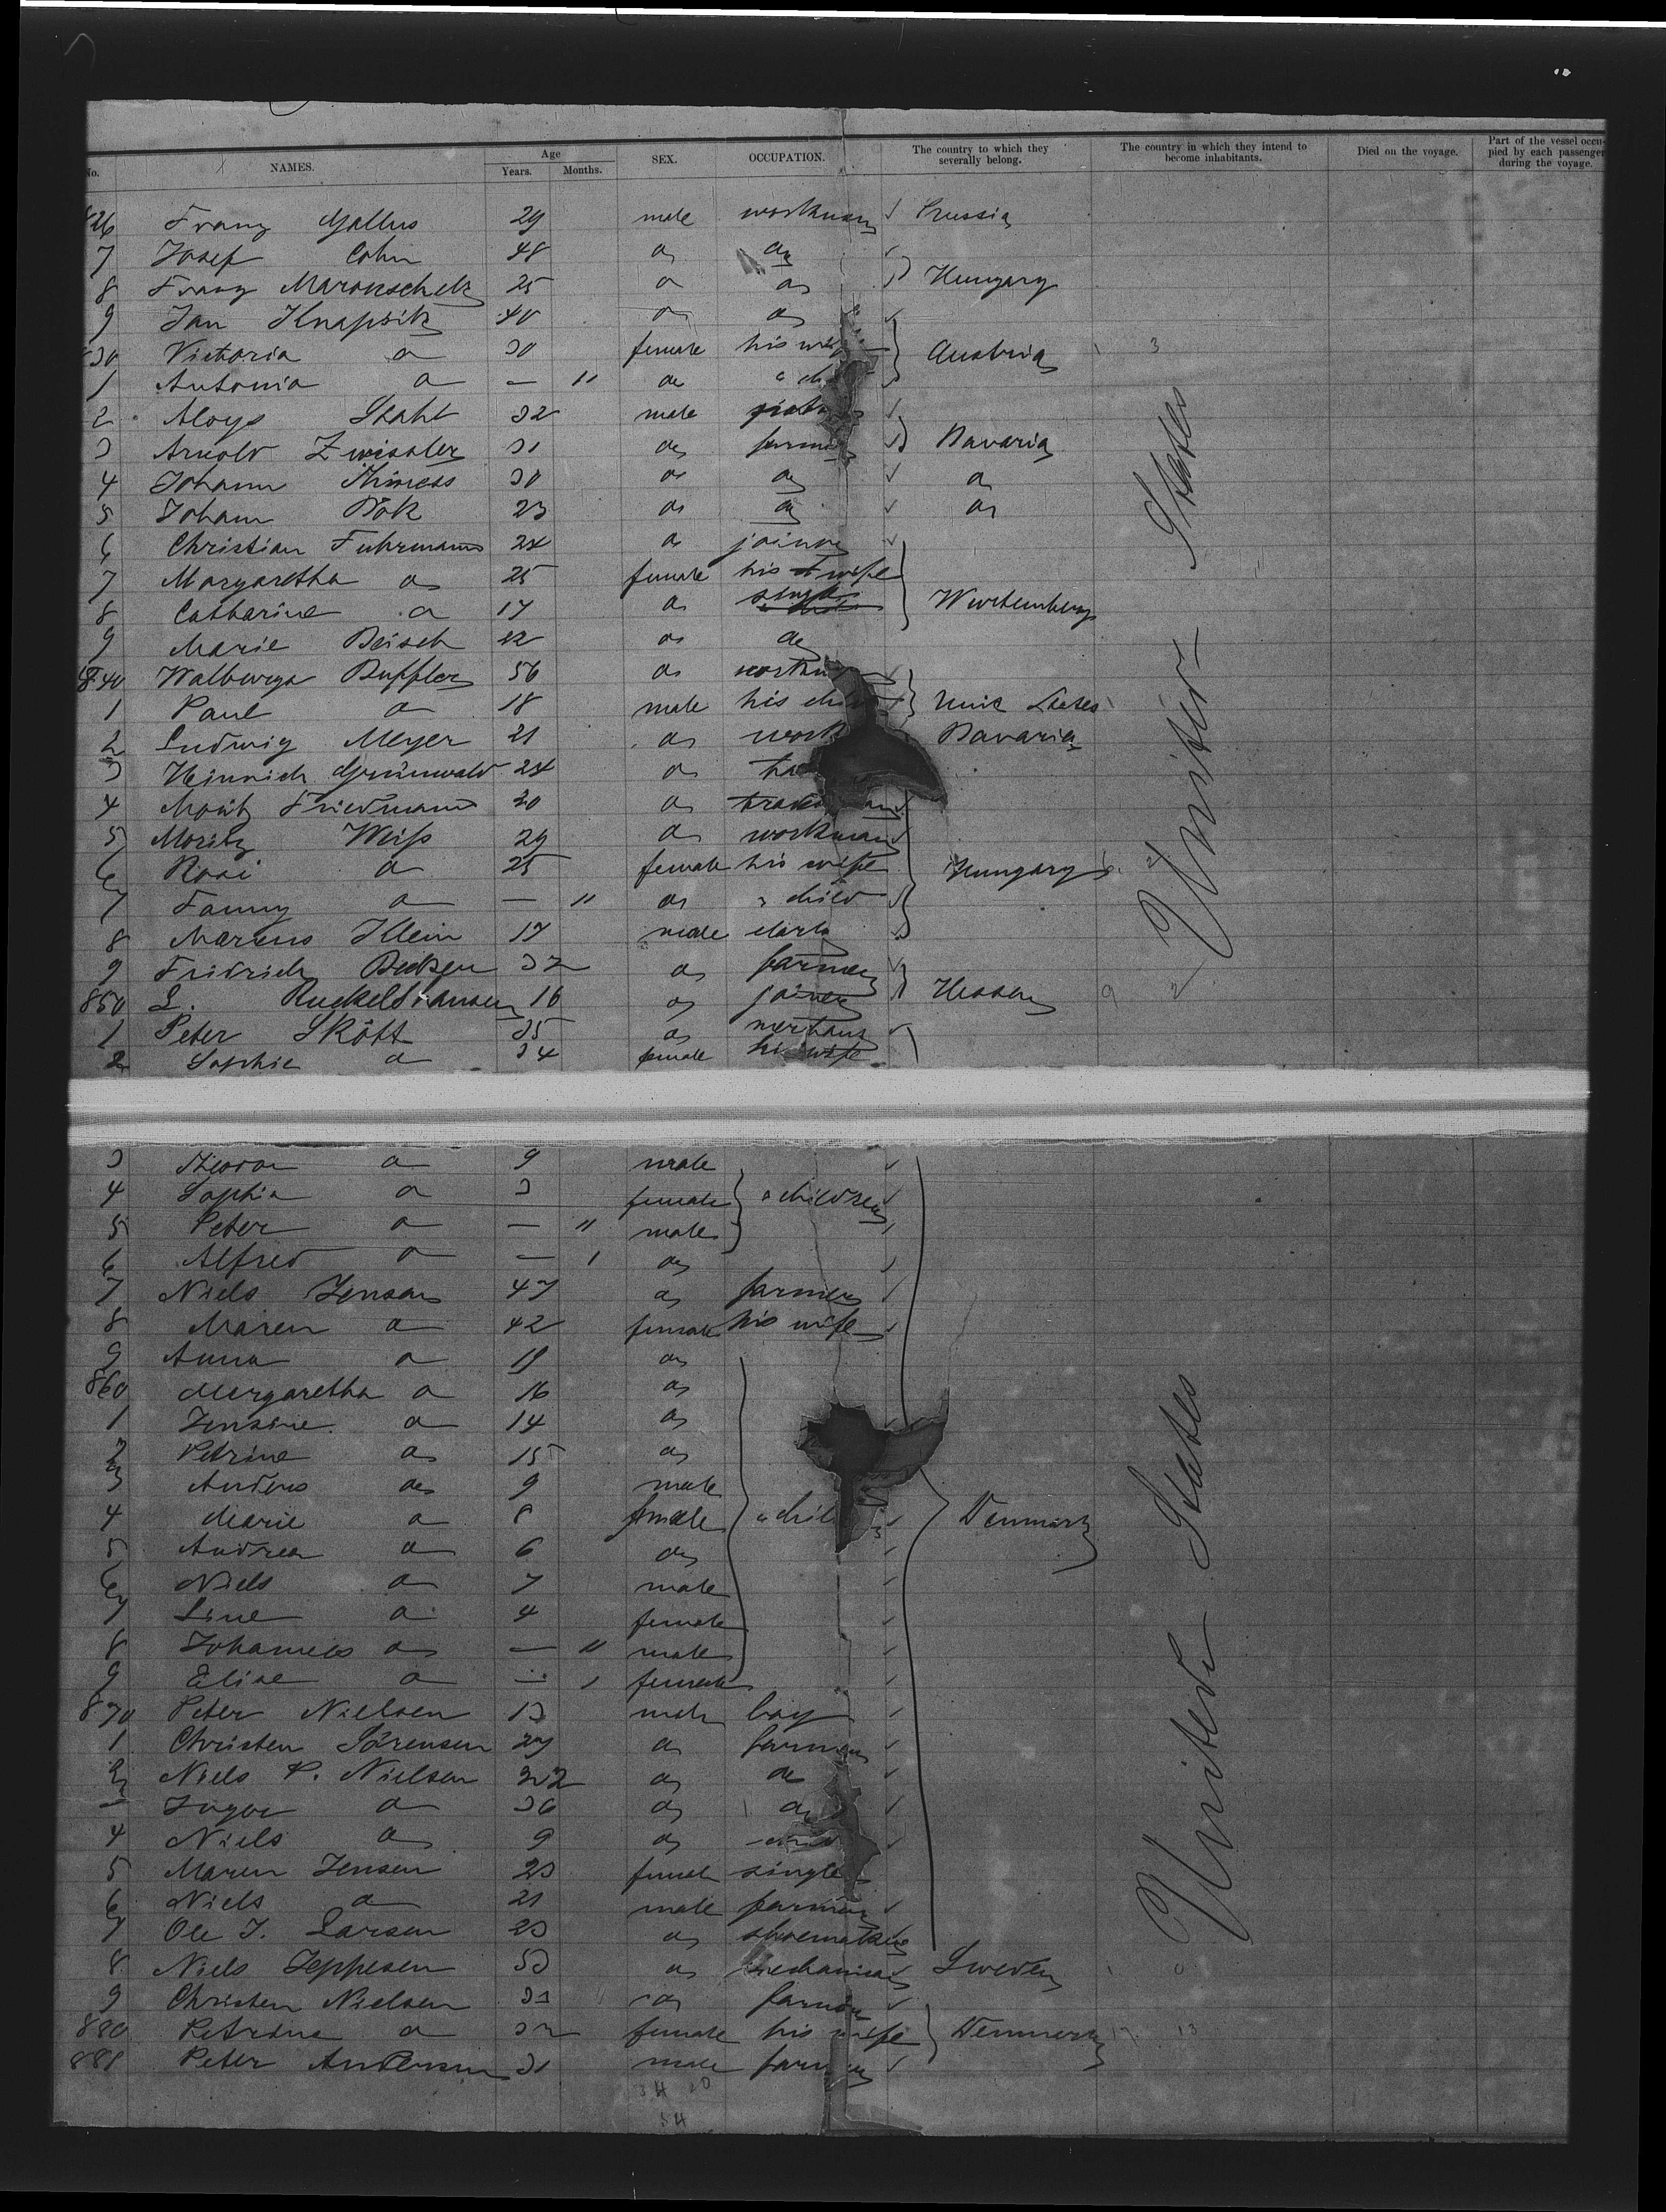 No. NAMES. Age Years. Months. SEX. OCCUPATION. The country to which they severally belong. The country in which they intend to become inhabitants. Died on the voyage. Part of the vessel occupied by each passenger during the voyage.
826 Franz Gallus 29 male workman Prussia
7 Josef Cohn 48 do do
8 Franz 25 do do Hungary
9 Jan 40 do do
830 Victoria do 30 female his Austria
1 Antonia do — 11 do
2 Aloys Stahl 32 male
3 Arnold Zwissler 31 do Bavaria
4 Johann 30 do do do
5 Johann Bök 23 do do do
6 Christian Fuhrmann 24 do joiner
7 Margaretha do 25 female his wife
8 Catharine do 17 do single Wurtemberg
9 Marie 22 do do
840 Walburga 56 do
1 Paul do 18 male his Unit States
2 Ludwig Meyer 21 do Bavaria
3 Heinrich Grünwald 24 do
4 Moritz Friedmann 20 do
5 Moritz Weiss 29 do workman
6 Rosi do 25 female his wife Hungary
7 Fanny do — 11 do " child
8 Marcus Klein 17 male clerk
9 Fridrich 32 do farmer
850 L. Ruckeldhausen 16 do joiner Hessen
1 Peter Skött 35 do
2 Sophie do 34 female his wife
United States
3 do 9 male
4 Sophia do 3 female " children
5 Peter do — 11 male
6 Alfred do — 1 do
7 Niels Jensen 47 do farmer
8 Maren do 42 female his wife
9 Anna do 19 do
860 Margaretha do 16 do
1 Jensine do 14 do
2 Petrine do 15 do
3 Anders do 9 male
4 Marie do 8 female Denmark
5 Andrea do 6 do
6 Niels do 7 male
7 Line do 4 female
8 Johannes do — 11 male
9 Elise do — 1 female
870 Peter Nielsen 13 male boy
1 Christen Sörensen 27 do farmer
2 Niels P. Nielsen 32 do do
do 36 do do
4 Niels do 9 do
5 Maren Jensen 23 female single
6 Niels do 21 male farmer
7 Ole J. Larsen 23 do shoemaker
8 Niels Jeppesen 53 do mechanical Sweden
9 Christen Nielsen 31 do farmer
880 Petrine do 32 female his wife Denmark
881 Peter Andersen 31 male farmer
United States